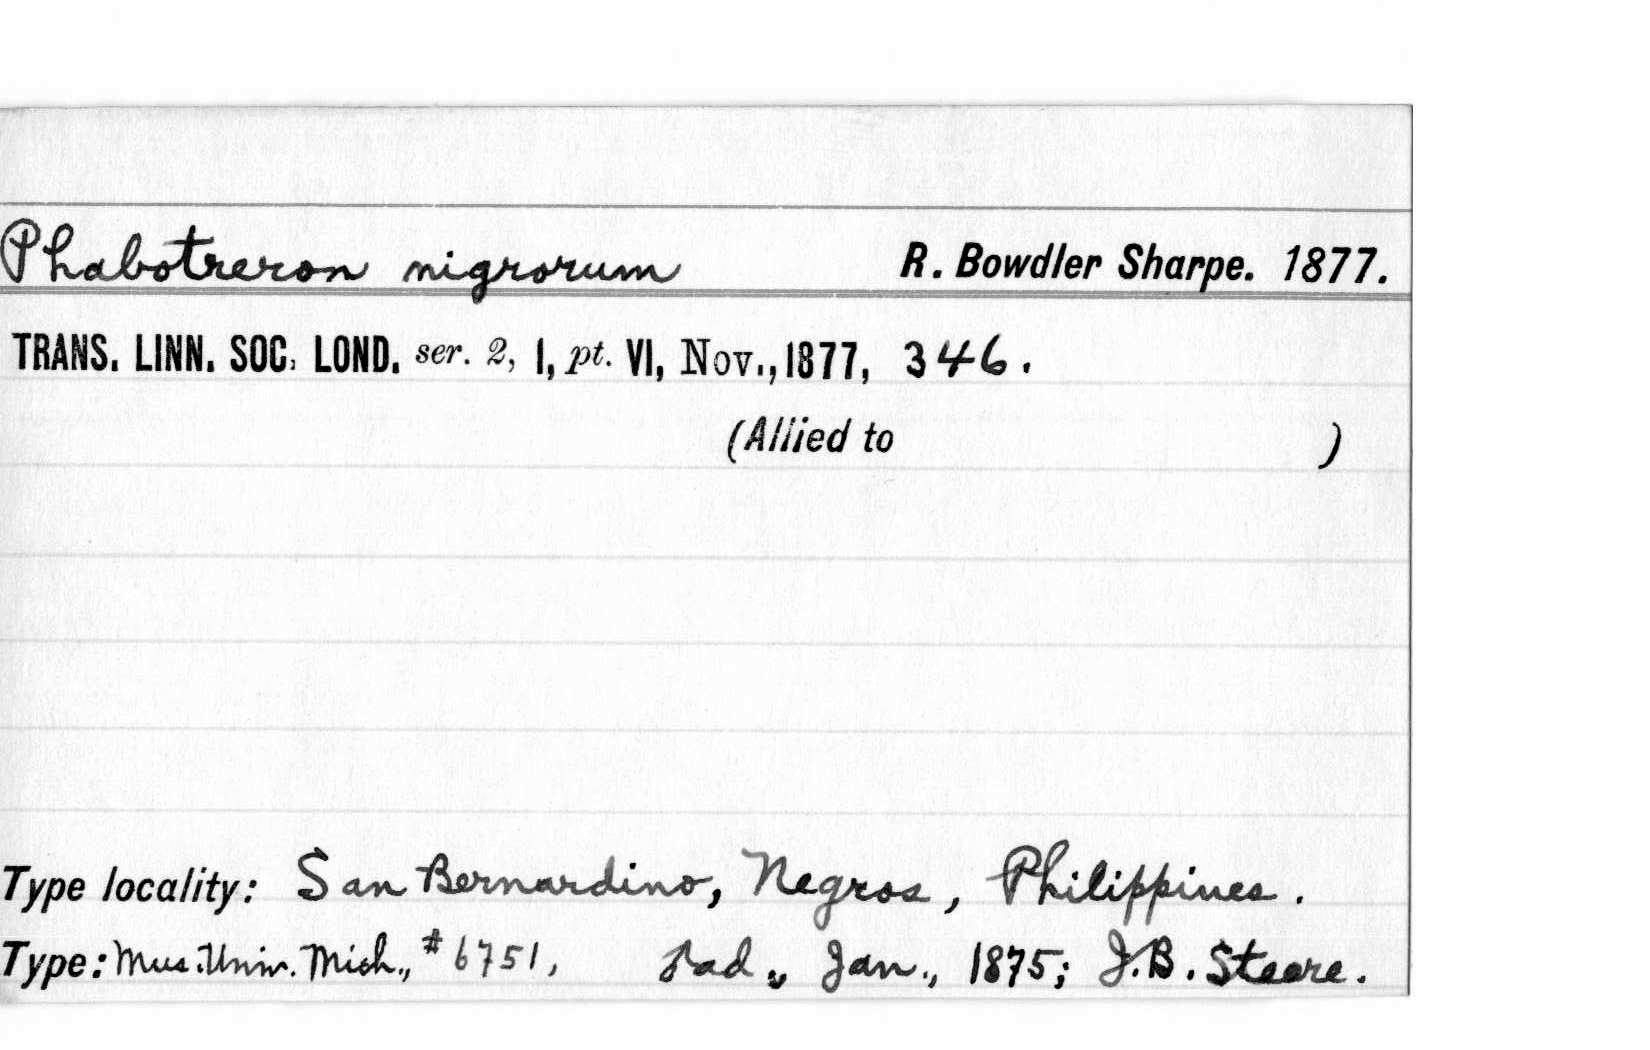 Phabotreron nigrorum R. Bowdler Sharpe. 1877.
TRANS. LINN. SOC. LOND. ser. 2, I, pt. VI, Nov., 1877, 346.
(Allied to )
Type locality: San Bernardino, Negros, Philippines.
Type: Mus. Univ. Mich., #6751, ad., Jan., 1875; J.B. Steere.